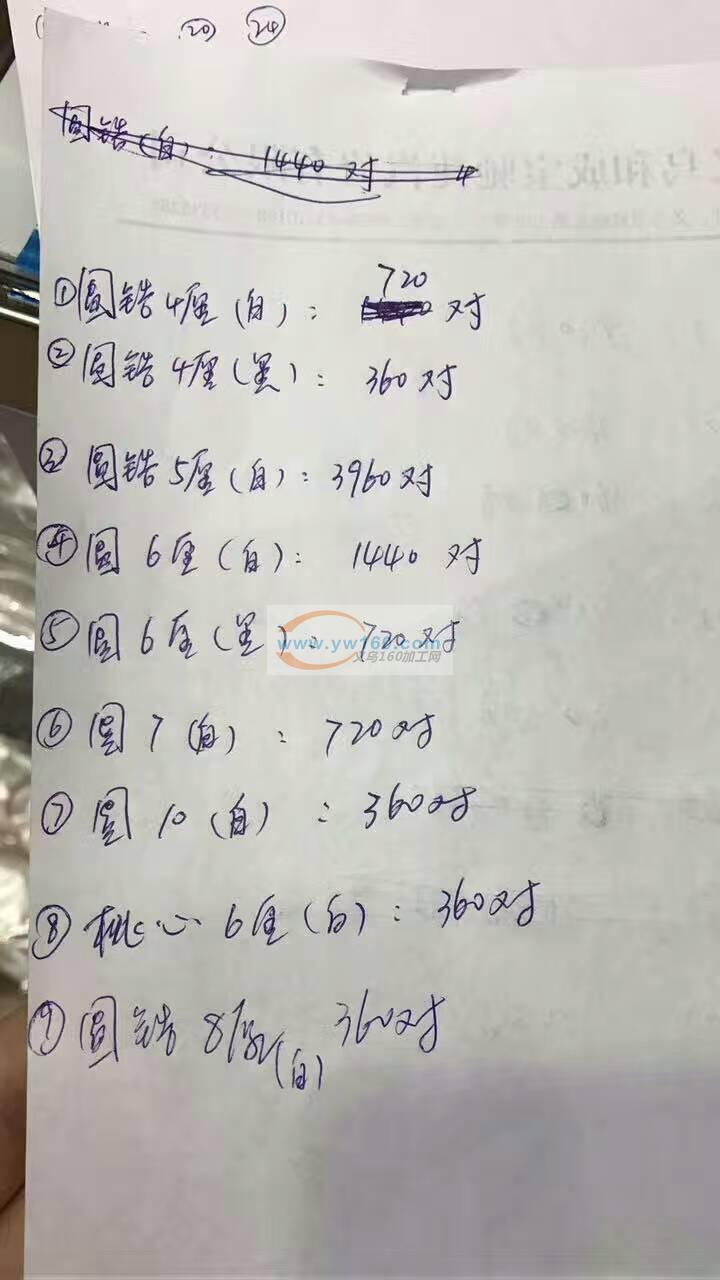 20 24
圆锆(白): 1440 对 4
720
①圆锆4厘(白): 对
②圆锆4厘(黑): 360对
③圆锆5厘(白): 3960对
④圆 6厘(白): 1440 对
⑤圆 6厘(黑): 720对
www.yw160.com
义乌160加工网
⑥圆 7 (白) : 720对
⑦圆 10 (白) : 360对
⑧桃心 6厘(白): 360对
⑨圆锆 8厘(白) 360对